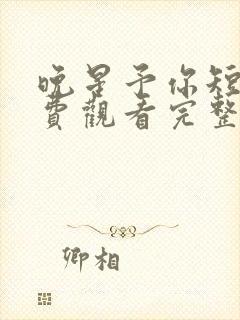 晚星予你短
費觀看完整
卿相